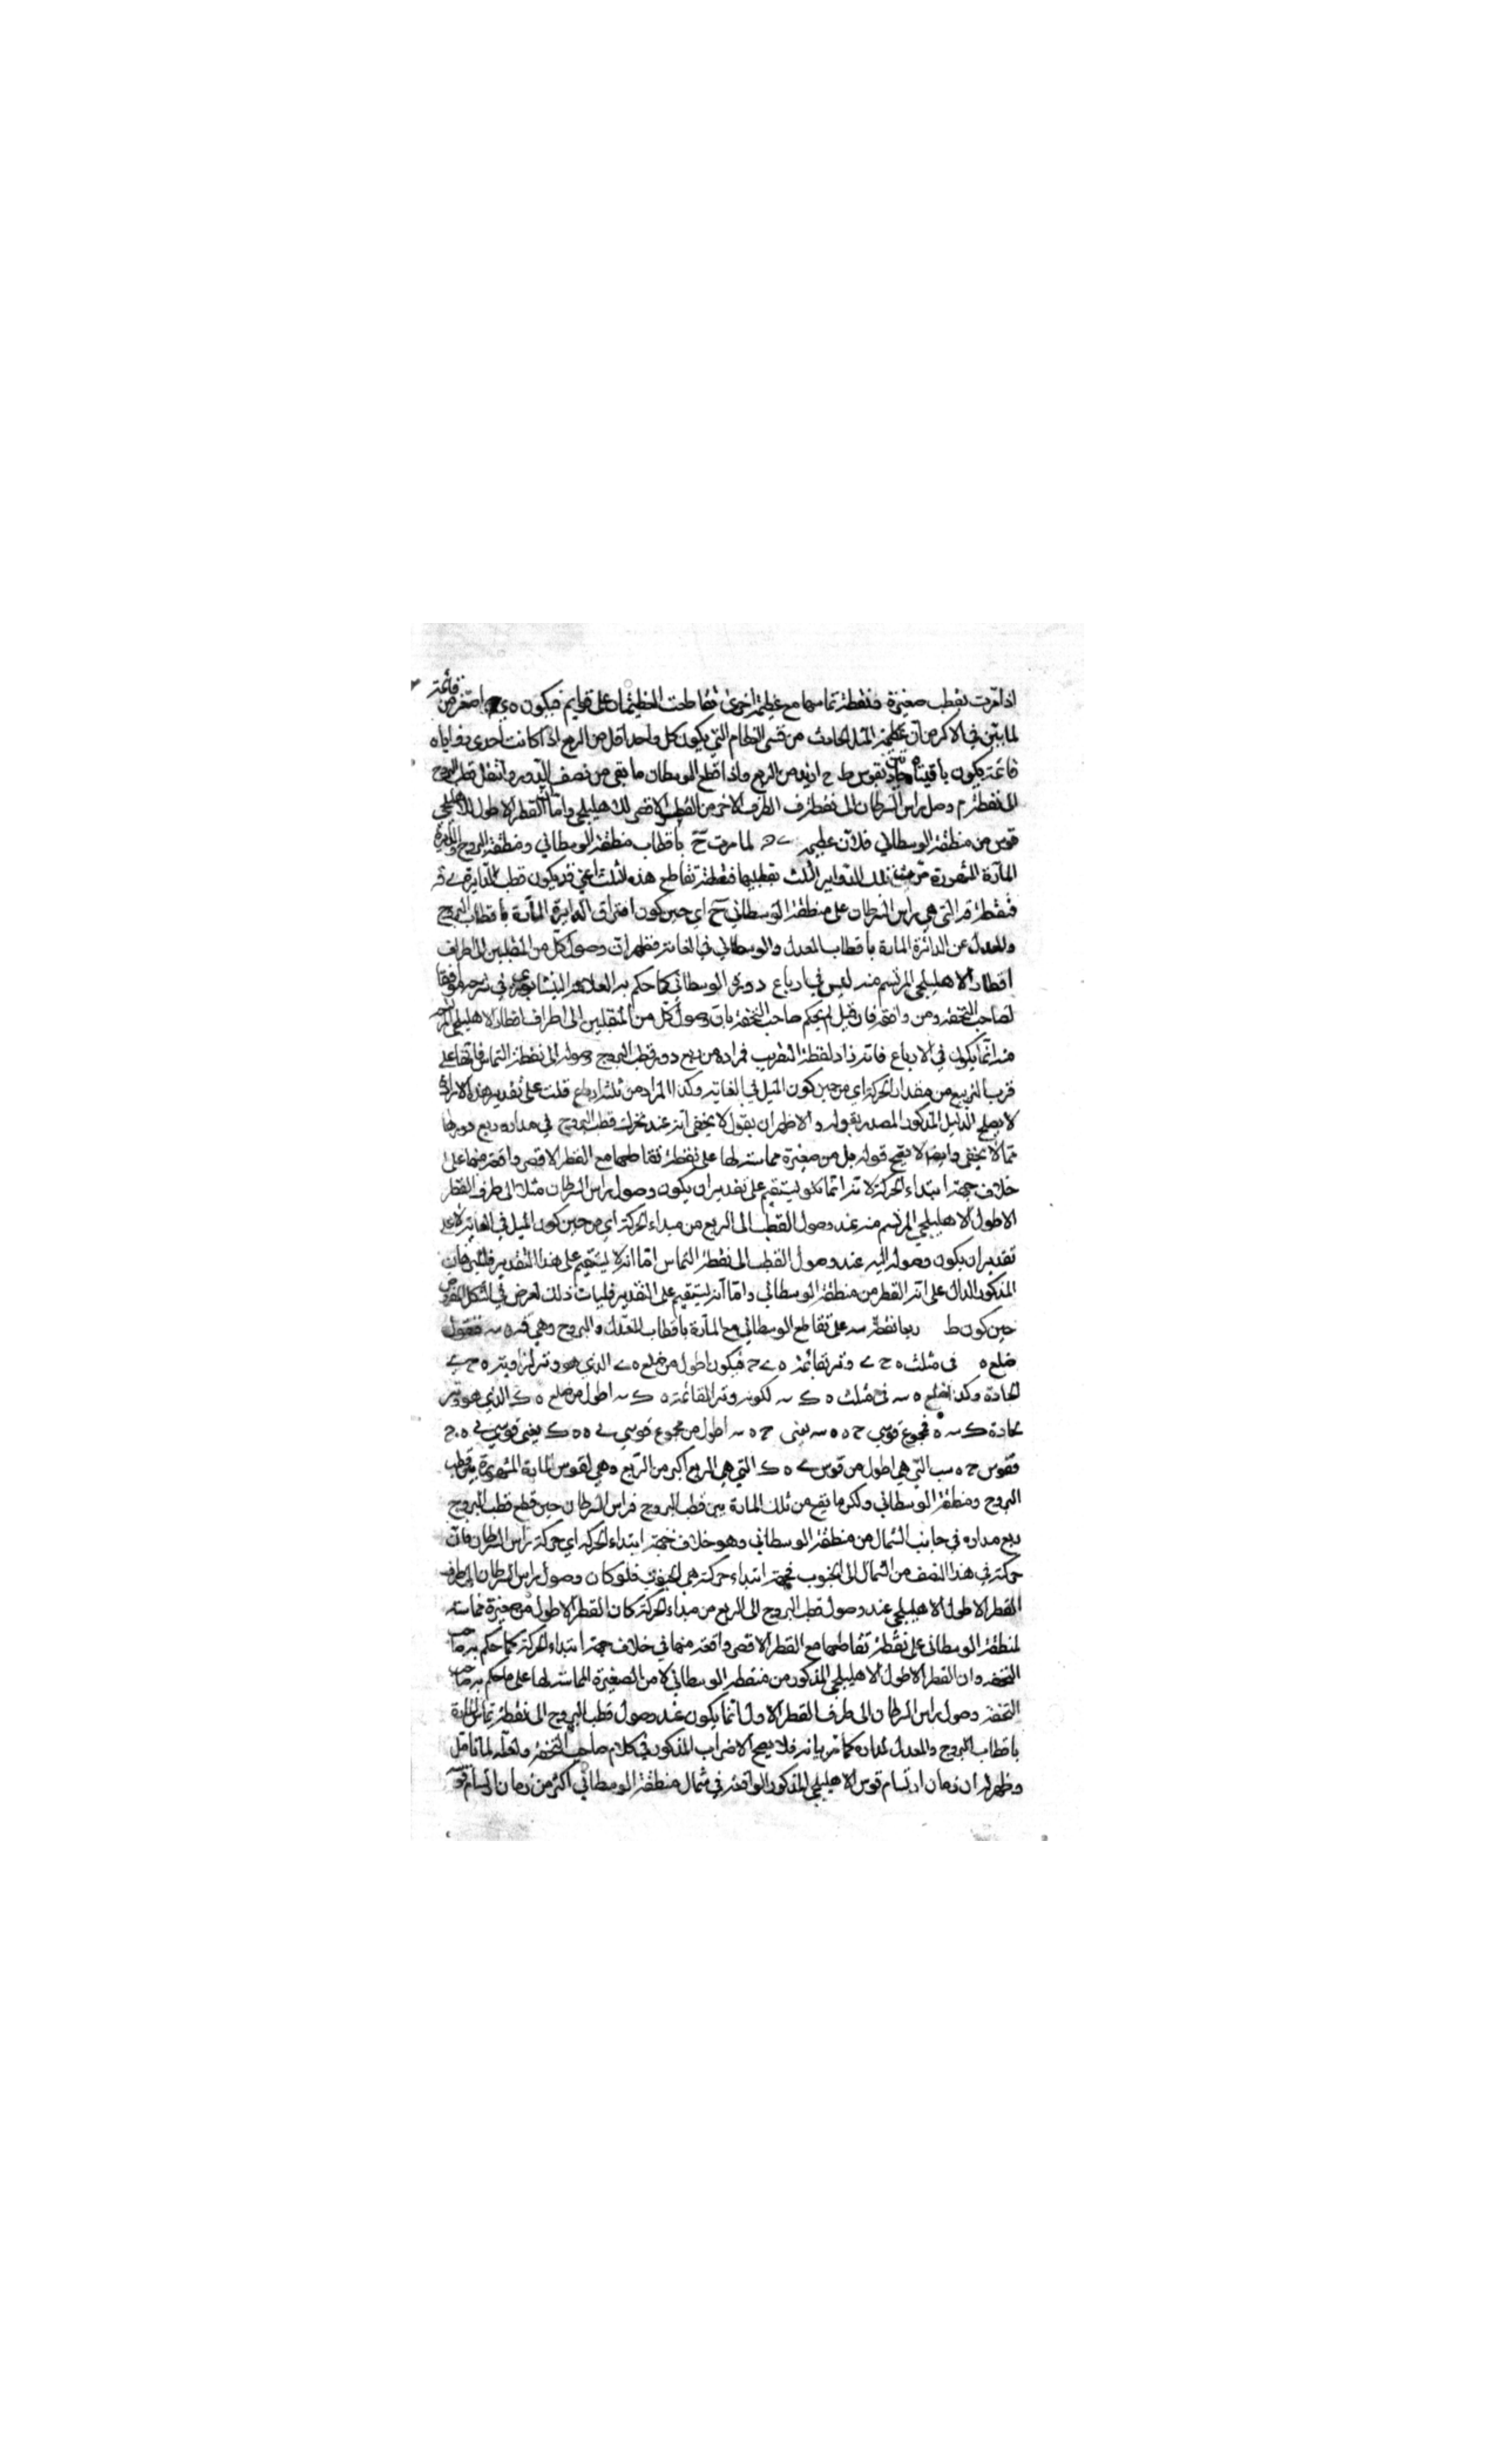 اذا مرت بقطب صغيرة وبنقطة تماسها مع عظيمة اخرى تقاطعت العظيمتان على قوايم فيكون اصغر من قائمة
لما تبين في الاكر من ان المثلث الحادث من قسي العظام التي يكون كل واحد اقل من الربع اذا كانت احدى زواياه
قائمة يكون باقيتاه حادتين فقوس ط ح ازيد من الربع واذا قطع الوسطان ما بقي من نصف الدور وانتقل قطب البروج
الى نقطة م وصل راس السرطان الى نقطة ف الطرف الاخر من القطر الاقصر لذلك الهليلجي واما ان القطر الاطول للاهليلجي
قوس من منطقة الوسطاني فلان عظيمة لما مرت باقطاب منطقة الوسطاني ومنطقة البروج والدايرة
المارة المتصورة تلك الدواير الثلث بقطبيها فنقطة تقاطع هذه الثلث اعني قه يكون قطب الدايرة
فنقطة قه التي هي راس السرطان على منطقة الوسطاني ح اي حين كون افتراق الدايرة المارة باقطاب البروج
والمعدل عن الدائرة المارة باقطاب المعدل والوسطاني في الغاية فظهر ان وصول كل من المنقلبين الى اطراف
اقطار الاهليلجي المرتسم منه ليس في ارباع دورة الوسطاني كما حكم به العلامة النيشابوري في شرحه موافقا
لصاحب التحفة ومن وافقه فان قيل لم يحكم صاحب التحفة بان وصول كل من المنقلبين الى اطراف اقطار الاهليلجي المرتسم
منه انما يكون في الارباع فانه زاد لفظة التقريب فمراده من ربع دور قطب البروج وصوله الى نقطة التماس فانها على
قرب الربع من مقدار الحركة اي من حين كون الميل في الغاية وكذا المراد من ثلثة ارباع قلت على تقدير هذه الارادة
لا يصلح الدليل المذكور المصدر بقوله والاظهر ان يقول لا يخفى انه عند تحرك قطب البروج في مداره ربع دورها
مما لا يخفى وايضا لا يصح قوله بل من صغيرة مماسة لها على نقطة تقاطعها مع القطر الاقصر واقعة منها على
خلاف جهة ابتداء الحركة لانه انما يستقيم على تقدير ان يكون وصول راس السرطان مثلا الى طرف القطر
الاطول للاهليلجي المرتسم منه عند وصول القطب الى الربع من مبداء الحركة اي من حين كون الميل في الغاية لا على
تقدير ان يكون وصوله اليه عند وصول القطب الى نقطة التماس اما انه لا يستقيم على هذا التقدير
المذكور الدال على ان القطر من منطقة الوسطاني واما انه يستقيم على التقدير فلبيان ذلك لنفرض في الشكل المفروض
حين كون ط ربعا نقطة سه على تقاطع الوسطاني مع المارة باقطاب المعدل والبروج وهي قه ه سه فنقول
ضلع ه في مثلث ه ح ى وتر لقائمة ه ى ح فيكون اطول من ضلع ه ى الذي هو وتر لزاوية ه ح ى
الحادة وكذا ضلع ه سه في مثلث ه ک سه لكونه وتر القائمة ه ک سه اطول من ضلع ه ک الذي هو وتر
حادة ک سه ه فمجموع قوسي ح ه ه سه يعني ح ه سه اطول من مجموع قوسي ى ه ه ک يعني قوسي
فقوس ح ه سه التي هي اطول من قوس ى ه ک التي هي الربع اكبر من الربع وهي لقوس المارة المتصورة بين قطب
البروج ومنطقة الوسطاني ولكن ما يقع من تلك المارة بين قطب البروج فراس السرطان حين قطع قطب البروج
ربع مداره في جانب الشمال من منطقة الوسطاني وهو خلاف جهة ابتداء الحركة اي حركة راس السرطان فان
حركته في هذا النصف من الشمال الى الجنوب فجهة ابتداء حركته هي الجنوب فلو كان وصول راس السرطان الى طرف
القطر الاطول للاهليلجي عند وصول قطب البروج الى الربع من مبداء الحركة كان القطر الاطول من صغيرة مماسة
لمنطقة الوسطاني على نقطة تقاطعها مع القطر الاقصر واقعة منها في خلاف جهة ابتداء الحركة كما حكم به صاحب
التحفة وان القطر الاطول للاهليلجي المذكور من منطقة الوسطاني لا من الصغيرة المماسة لها على ما حكم به صاحب
التحفة وصول راس السرطان الى طرف القطر الاول انما يكون عند وصول قطب البروج الى نقطة تماس المارة
باقطاب البروج والمعدل لمداره كما مر بيانه فلا يصح الاضراب المذكور في كلام صاحب التحفة ولعله لما تامل
وظهر له ان زمان ارتسام قوس الاهليلجي المذكور الواقعة في شمال منطقة الوسطاني اكثر من زمان ارتسام قوسه